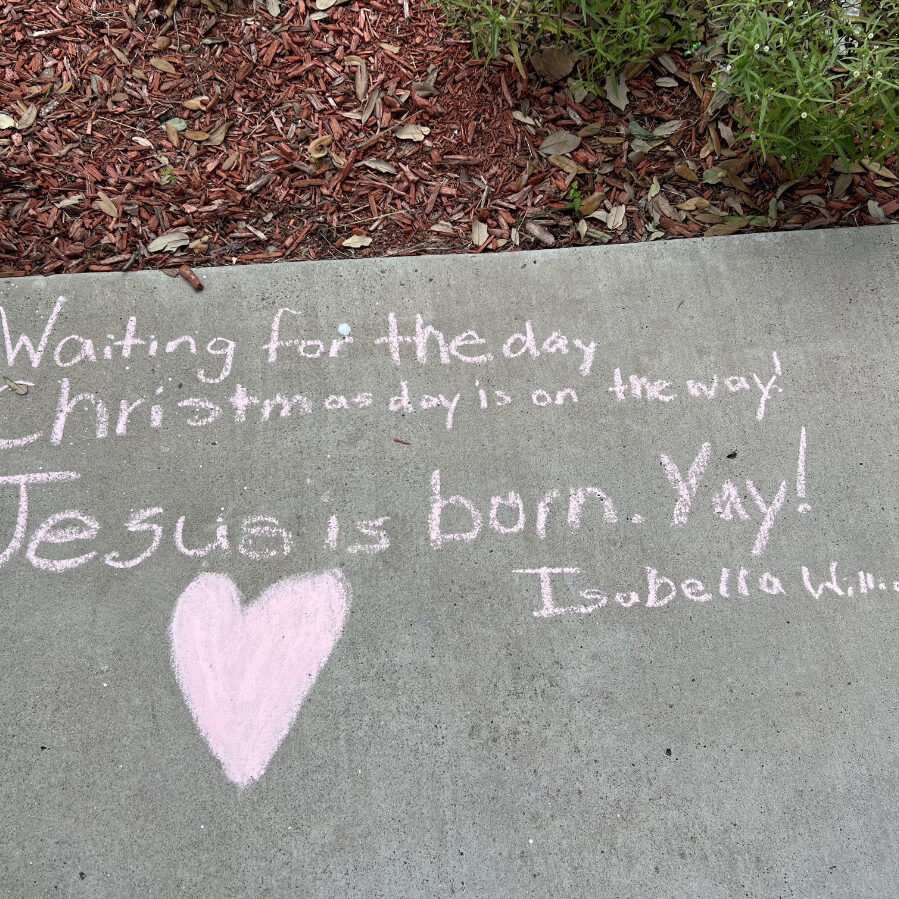 Waiting for the day
Christmas day is on the way!
Jesus is born. Yay!
Isabella